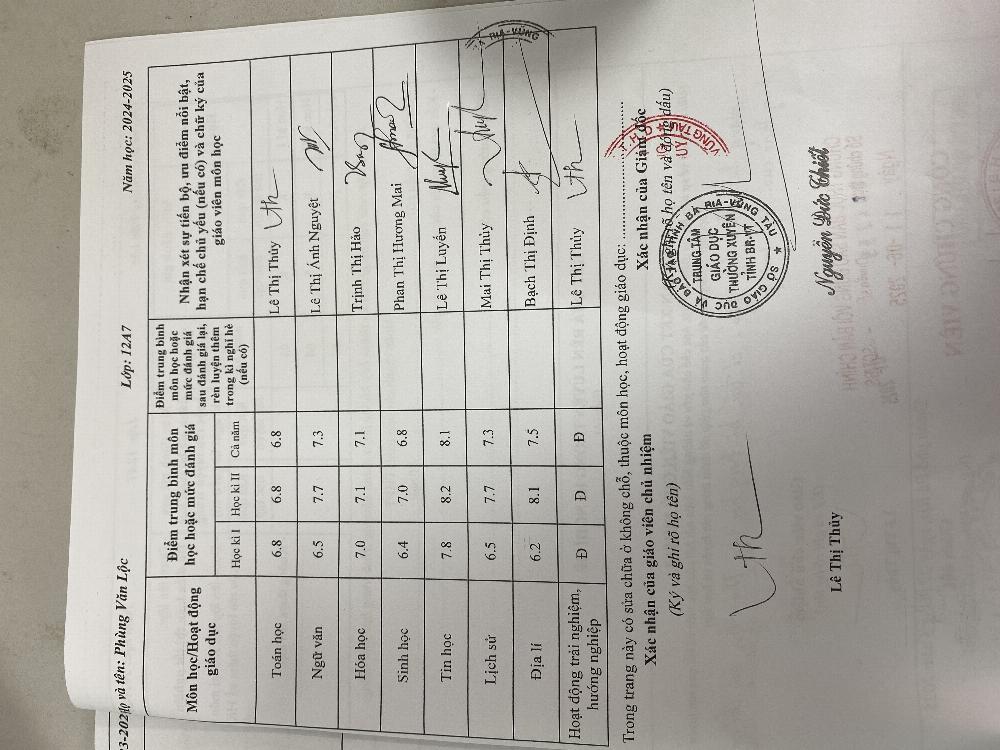 Họ và tên: Phùng Văn Lộc Lớp: 12A7 Năm học: 2024-2025
Môn học/Hoạt động giáo dục
Điểm trung bình môn học hoặc mức đánh giá
Học kì I Học kì II Cả năm
Điểm trung bình môn học hoặc mức đánh giá sau đánh giá lại, rèn luyện thêm trong kì nghỉ hè (nếu có)
Nhận xét sự tiến bộ, ưu điểm nổi bật, hạn chế chủ yếu (nếu có) và chữ ký của giáo viên môn học
Toán học 6.8 6.8 6.8 Lê Thị Thủy
Ngữ văn 6.5 7.7 7.3 Lê Thị Ánh Nguyệt
Hóa học 7.0 7.1 7.1 Trịnh Thị Hảo
Sinh học 6.4 7.0 6.8 Phan Thị Hương Mai
Tin học 7.8 8.2 8.1 Lê Thị Luyên
Lịch sử 6.5 7.7 7.3 Mai Thị Thủy
Địa lí 6.2 8.1 7.5 Bạch Thị Định
Hoạt động trải nghiệm, hướng nghiệp Đ Đ Đ Lê Thị Thủy
Trong trang này có sửa chữa ở không chỗ, thuộc môn học, hoạt động giáo dục: ........................
Xác nhận của giáo viên chủ nhiệm
(Ký và ghi rõ họ tên)
Lê Thị Thủy
Xác nhận của Giám đốc
(Ký, ghi rõ họ tên và đóng dấu)
SỞ GIÁO DỤC VÀ ĐÀO TẠO TỈNH BÀ RỊA-VŨNG TÀU
TRUNG TÂM
GIÁO DỤC
THƯỜNG XUYÊN
TỈNH BR-VT
Nguyễn Đức Thiết
RỊA-VŨNG